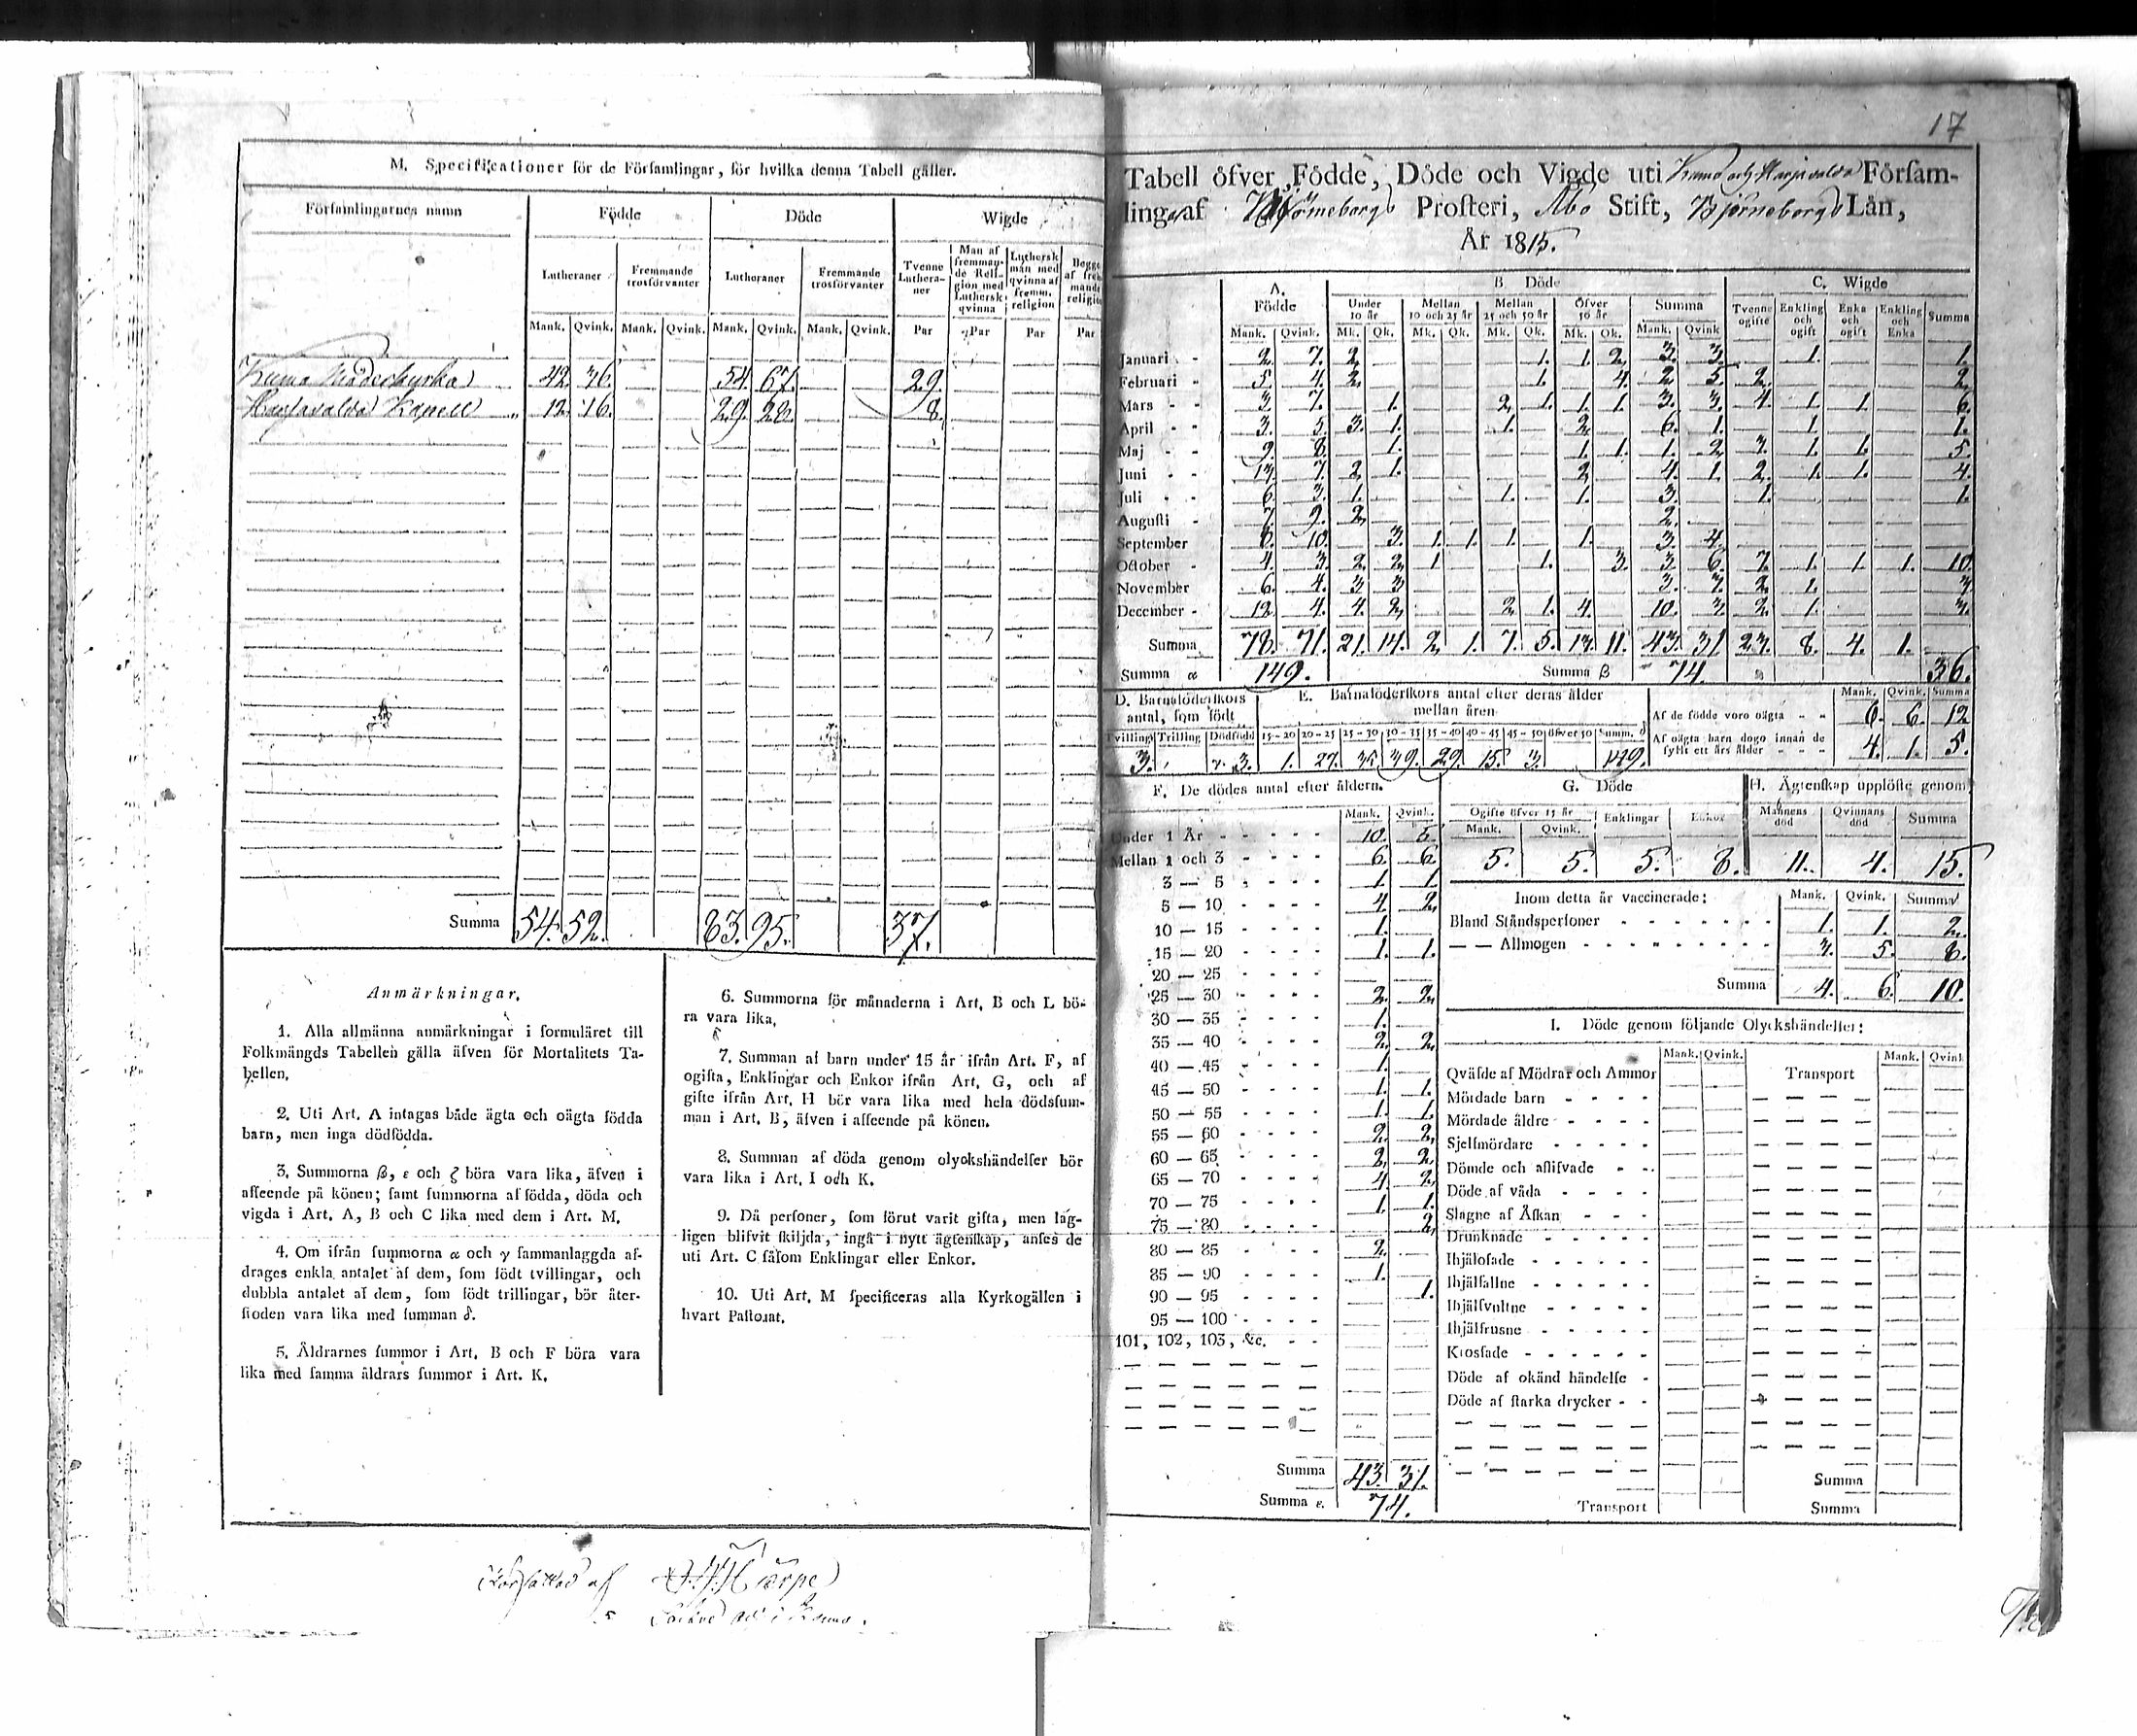 M. Specificationer för de Församlingar, för hvilka denna Tabell gäller.
Församlingarnes namn Födde Döde Wigde
Lutheraner Fremmande trosförvanter Lutheraner Fremmande trosförvanter Tvenne Lutheraner Man af fremmande Religion med Luthersk qvinna Luthersk man med qvinna af fremm. religion
Mank. Qvink. Mank. Qvink. Mank. Qvink. Mank. Qvink. Par Par Par Par
Kumo Moderkyrka 42. 36. 54. 67. 29.
Harjavalda Kapell 12. 16. 29. 28. 8.
Summa 54. 52. 83. 95. 37.
Anmärkningar.
1. Alla allmänna anmärkningar i formuläret till
Folkmängds Tabellen gälla äfven för Mortalitets Ta-
bellen.
2. Uti Art. A intagas både ägta och oägta födda
barn, men inga dödfödda.
3. Summorna β, ε och ζ böra vara lika, äfven i
afseende på könen; samt summorna af födda, döda och
vigda i Art. A, B och C lika med dem i Art. M.
4. Om ifrån summorna α och γ sammanlaggda af-
drages enkla antalet af dem, som födt tvillingar, och
dubbla antalet af dem, som födt trillingar, bör åter-
stoden vara lika med summan δ.
5. Åldrarnes summor i Art. B och F böra vara
lika med samma åldrars summor i Art. K.
6. Summorna för månaderna i Art. B och L bö-
ra vara lika.
7. Summan af barn under 15 år ifrån Art. F, af
ogifta, Enklingar och Enkor ifrån Art. G, och af
gifte ifrån Art. H bör vara lika med hela dödssum-
man i Art. B, äfven i afseende på könen.
8. Summan af döda genom olyckshändelser bör
vara lika i Art. I och K.
9. Då personer, som förut varit gifta, men lag-
ligen blifvit skiljda, ingå i nytt ägtenskap, anses de
uti Art. C såsom Enklingar eller Enkor.
10. Uti Art. M specificeras alla Kyrkogällen i
hvart Pastorat.
Författad af
17
Tabell öfver Födde, Döde och Vigde uti Kumo och Harjavalda Församling
af Björneborgs Prosteri, Åbo Stift, Björneborgs Län,
År 1815.
A. Födde B. Döde C. Wigde
Under 10 år Mellan 10 och 25 år Mellan 25 och 50 år Öfver 50 år Summa Tvenne ogifte Enkling och ogift Enka och ogift Enkling och Enka Summa
Mank. Qvink. Mk. Qk. Mk. Qk. Mk. Qk. Mk. Qk. Mank. Qvink.
Januari 2. 7. 2. 1. 1. 2. 3. 3. 1. 1.
Februari 5. 4. 2. 1. 4. 2. 5. 2. 2.
Mars 3. 7. 1. 2. 1. 1. 1. 3. 3. 4. 1. 1. 6.
April 3. 5. 3. 1. 1. 2. 6. 1. 1. 1.
Maj 9. 8. 1. 1. 1. 1. 2. 3. 1. 1. 5.
Juni 13. 7. 2. 1. 2. 4. 1. 2. 1. 1. 4.
Juli 6. 3. 1. 1. 1. 3. 1. 1.
Augusti 7. 9. 2. 2.
September 8. 10. 3. 1. 1. 1. 1. 3. 4.
October 4. 3. 2. 2. 1 1. 3. 3. 6. 7. 1. 1. 1. 10.
November 6. 4. 3 3 3. 3. 2. 1. 3.
December 12. 4. 4. 2. 2. 1. 4. 10. 3. 2. 1. 3.
Summa 78. 71. 21. 14. 2. 1. 7. 5. 13. 11. 43. 31 23. 8. 4. 1.
Summa α 149. Summa β 74. 36.
D. Barnaföderskors antal, som födt
E. Barnaföderskors antal efter deras ålder mellan åren
Tvilling Trilling Dödfödd 15-20 20-25 25-30 30-35 35-40 40-45 45-50 öfver 50 Summ. δ
3. γ. 3. 1. 27. 35. 39. 29. 15. 3. 149.
Mank. Qvink. Summa
Af de födde voro oägta 6. 6. 12
Af oägta barn dogo innan de fyllt ett års ålder 4. 1. 5.
F. De dödes antal efter åldern.
Mank. Qvink.
Under 1 År 10. 5.
Mellan 1 och 3 6. 6.
3 — 5 1. 1.
5 — 10 4 2.
10 — 15 1.
15 — 20 1. 1.
20 — 25
25 — 30 2. 2.
30 — 35 1.
35 — 40 2. 2.
40 — 45 1.
45 — 50 1. 1.
50 — 55 1. 1.
55 — 60 2. 2.
60 — 65 2. 2.
65 — 70 4. 2.
70 — 75 1. 1.
75 — 80 2.
80 — 85 2.
85 — 90 1.
90 — 95 1.
95 — 100
101, 102, 103, &c.
Summa 43. 31.
Summa ε. 74.
G. Döde
Ogifte öfver 15 år Enklingar Enkor
Mank. Qvink.
5. 5. 5. 8.
H. Ägtenskap upplöste genom
Mannens död Qvinnans död Summa
11. 4. 15.
Inom detta år vaccinerade: Mank. Qvink. Summa
Bland Ståndspersoner 1. 1. 2.
— — Allmogen 3. 5. 8.
Summa 4. 6. 10.
I. Döde genom följande Olyckshändelser:
Mank. Qvink. Mank. Qvink
Qväfde af Mödrar och Ammor Transport
Mördade barn
Mördade äldre
Sjelfmördare
Dömde och aflifvade
Döde af våda
Slagne af Åskan
Drunknade
Ihjälosade
Ihjälfallne
Ihjälsvultne
Ihjälfrusne
Krossade
Döde af okänd händelse
Döde af starka drycker
Summa
Transport Summa